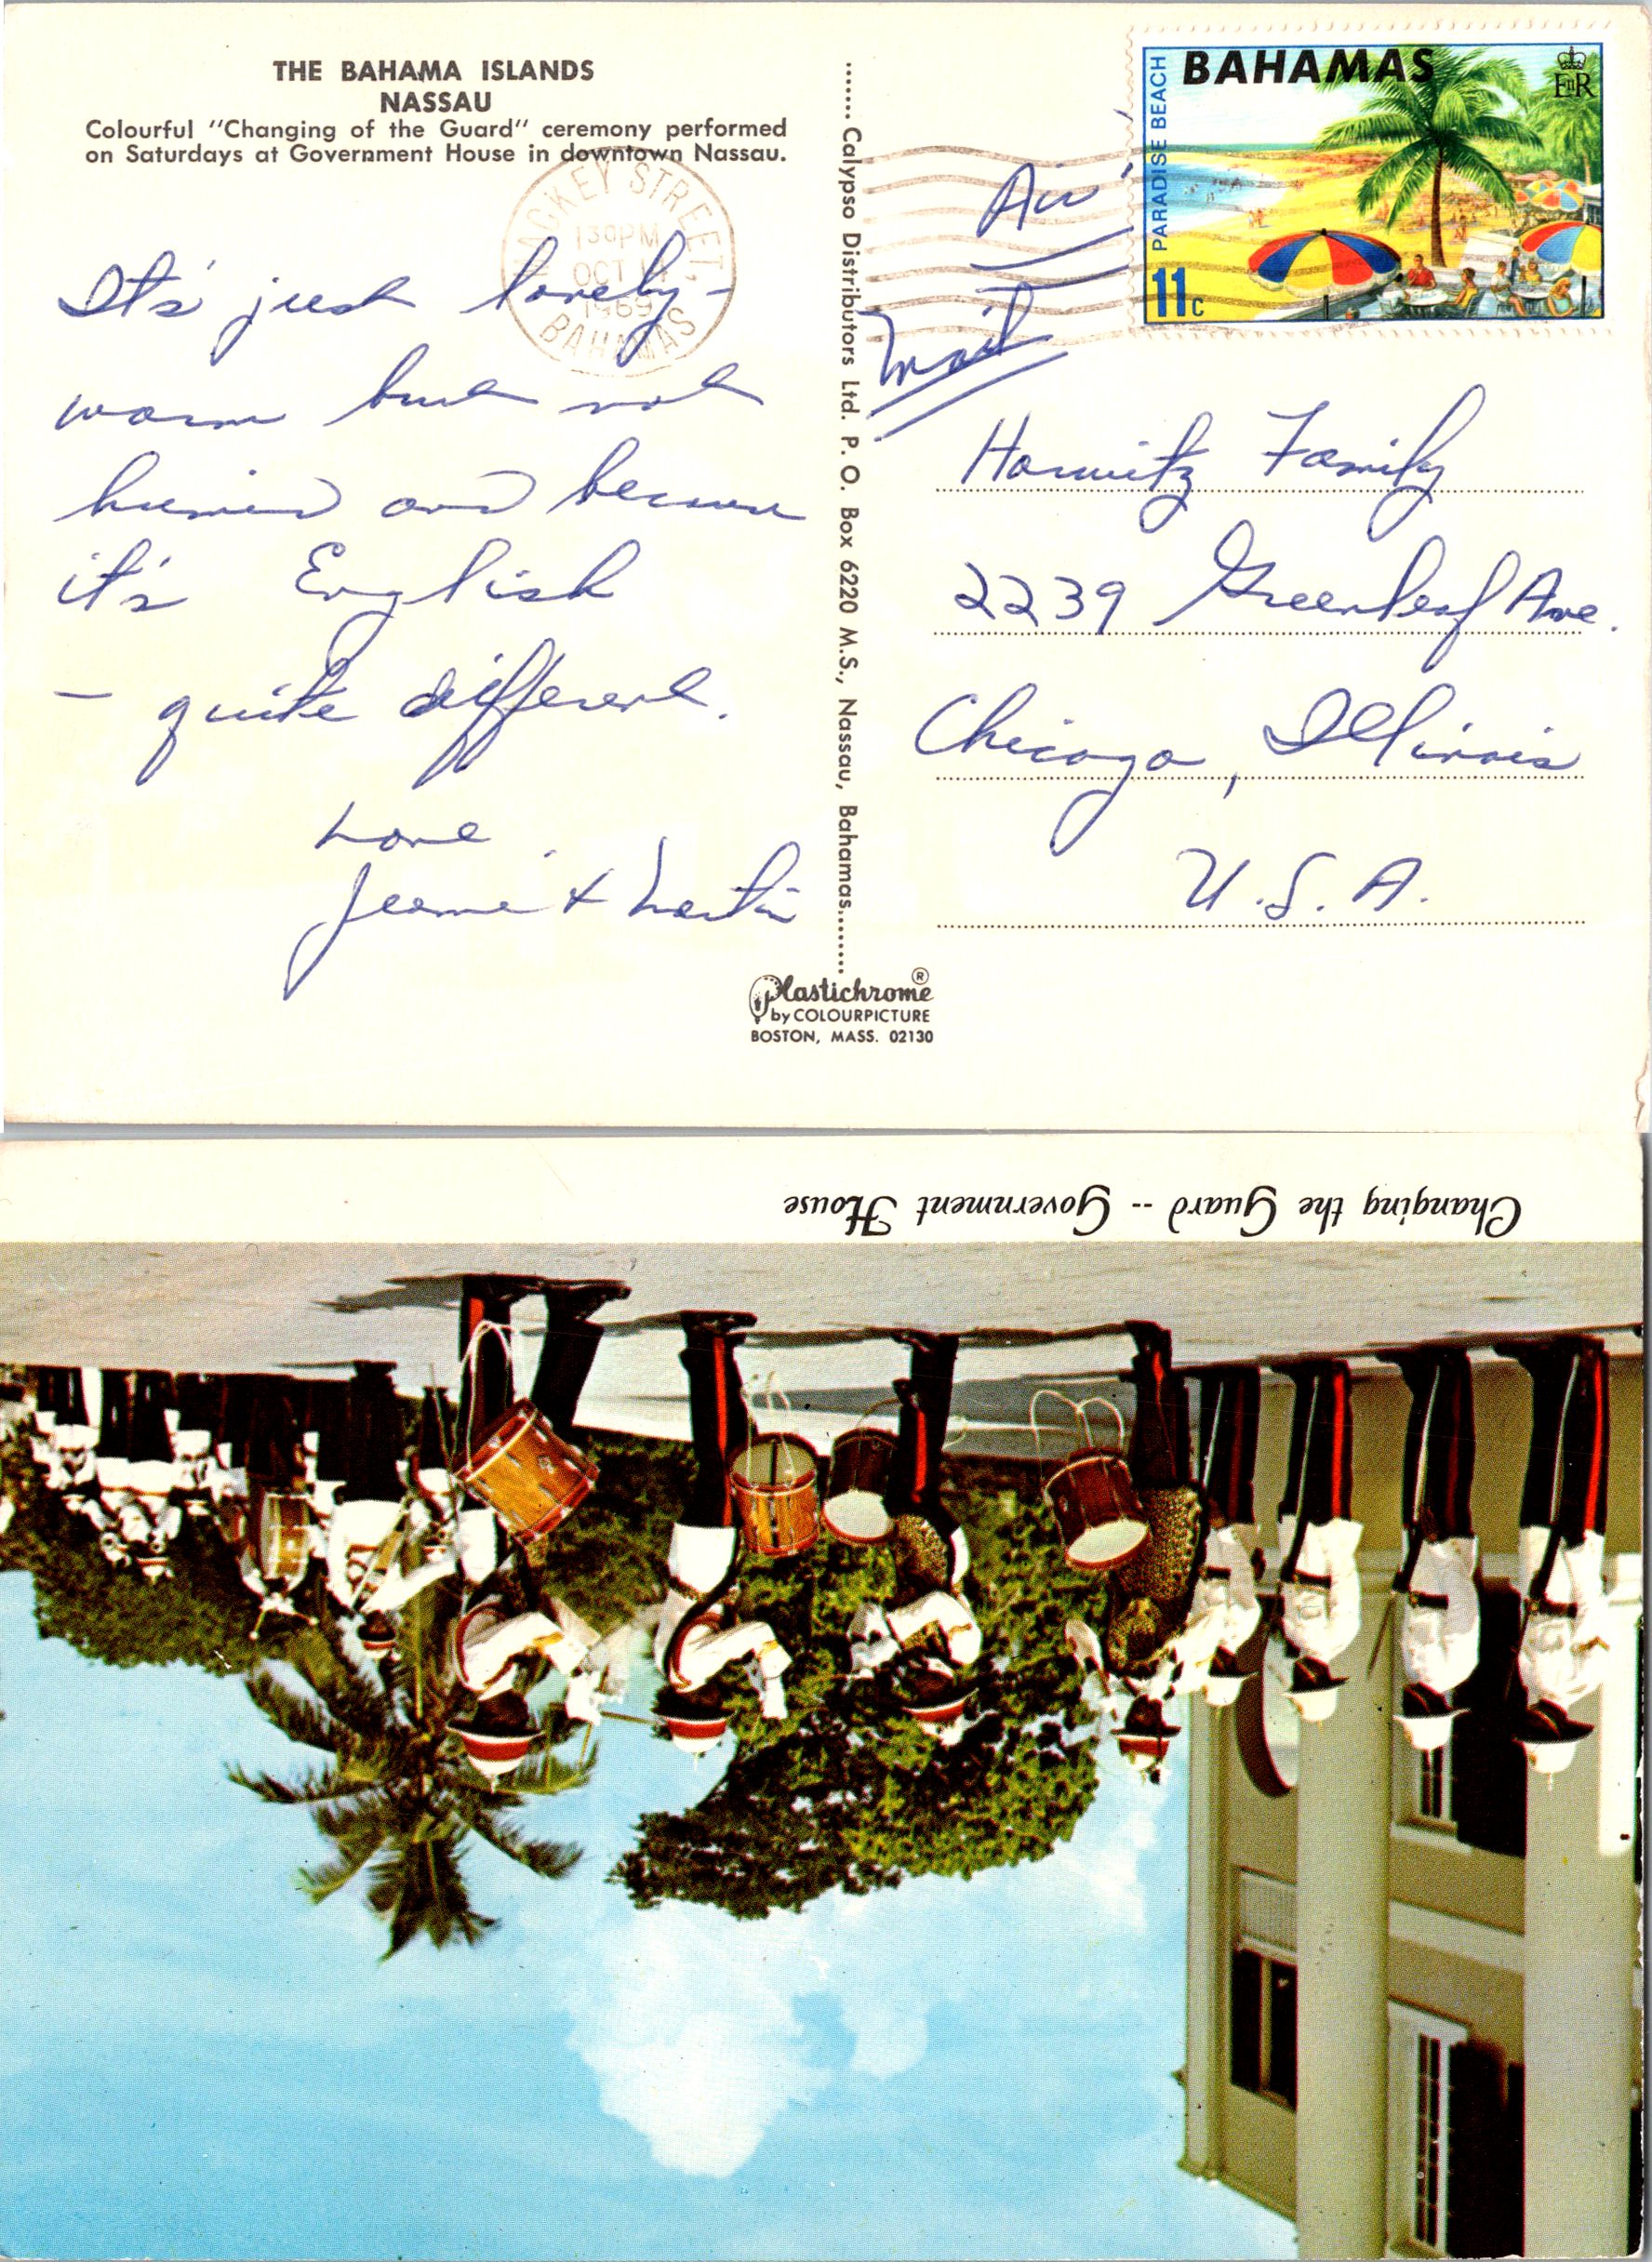 THE BAHAMA ISLANDS
NASSAU
Colourful "Changing of the Guard" ceremony performed
on Saturdays at Government House in downtown Nassau.
MACKEY STREET,
130PM
OCT
1969
BAHAMAS
It's just lovely -
warm but not
humid and because
it's English
- quite different.
Love
Jeanie & Martin
....... Calypso Distributors Ltd. P. O. Box 6220 M.S., Nassau, Bahamas.......
Plastichrome®
by COLOURPICTURE
BOSTON, MASS. 02130
BAHAMAS
EIIR
PARADISE BEACH
11c
Air
Mail
Horwitz Family
2239 Greenleaf Ave.
Chicago, Illinois
U.S.A.
Changing the Guard -- Government House